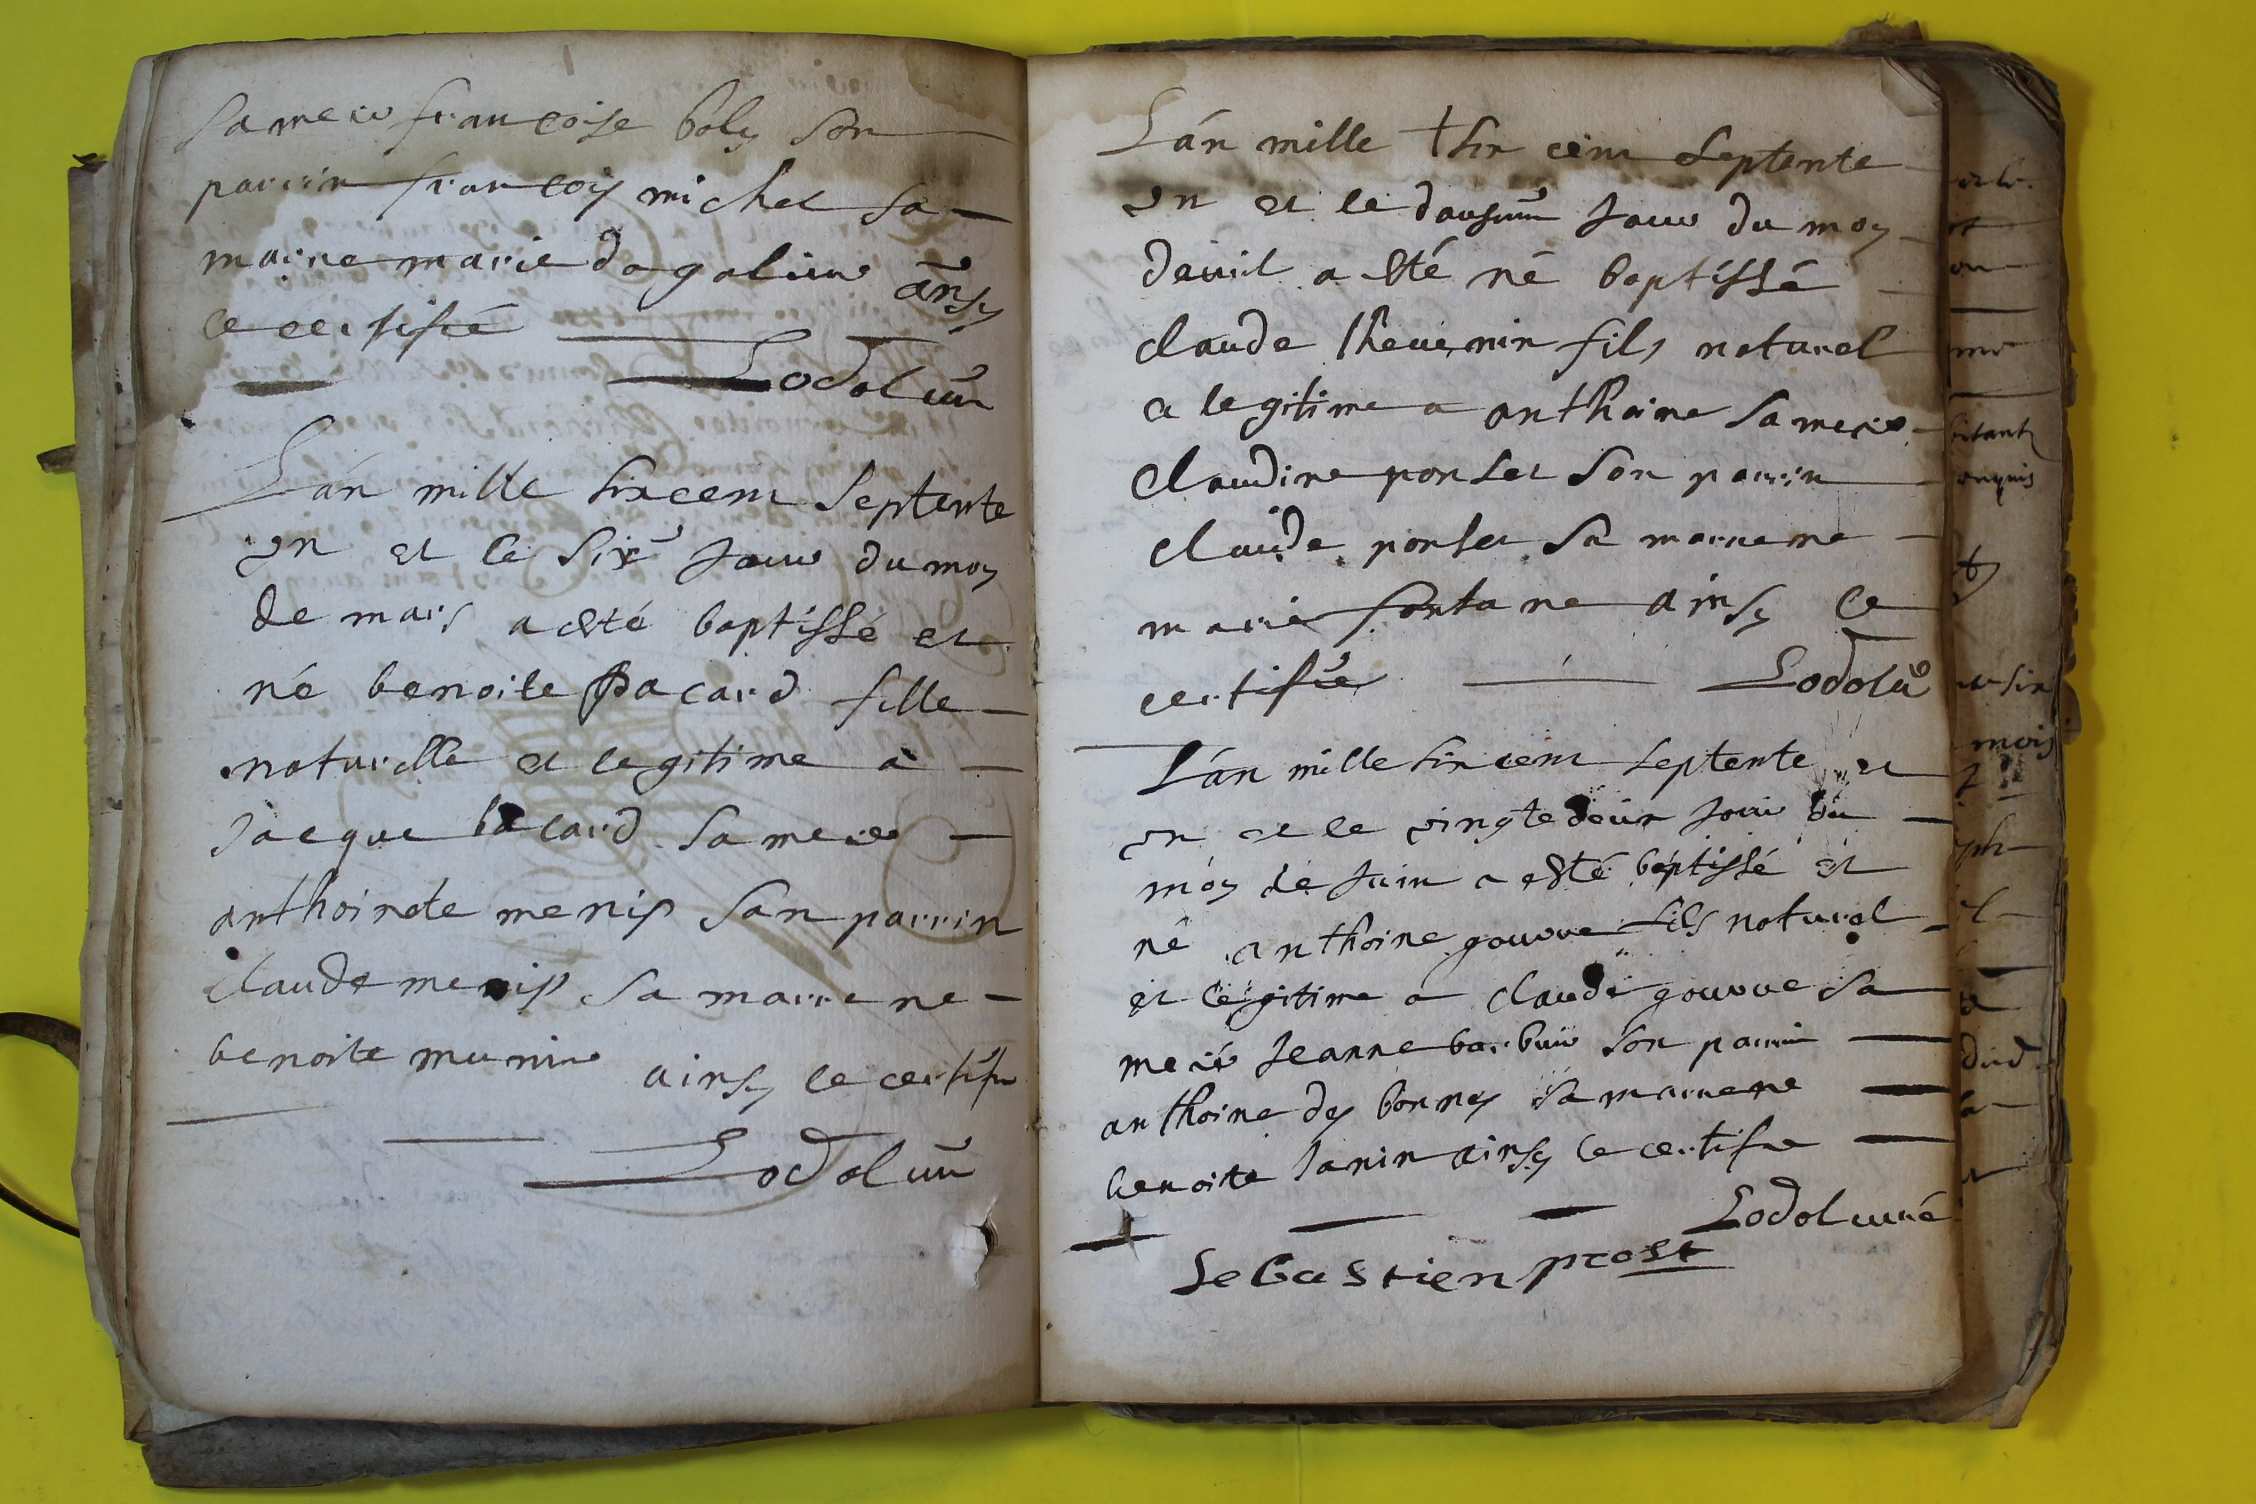 sa mere francoise boly son
parrin francois michel sa
marine marie dagaliere ainsy
le certifié
Lodolun
L'an mille six cent septente
un et le six jour du moy
de mars a esté baptissé et
né benoite pacard fille
naturelle et legitime a
Jacque bacard sa mere
anthoinete menis son parrin
claude menis sa marrene
benoite munire ainsy le certifie
Lodolun
L'an mille six cent septente
un et le jour du moy
davril a esté né baptissé
claude thevenin fils naturel
a legitime a anthoine sa mere
Claudine ponset son parrin
claude ponset sa marrene
marie fontane ainsy le
certifie
Lodolu
L'an mille six cent septente et
un et le vingte deux jour du
moy de juin a esté baptissé et
né anthoine gouvve fils naturel
et legitime a claude gouvve sa
mere jeanne barbuir son parrin
anthoine des bonnes sa marrene
benoite Janin ainsy le certifie
Lodolunné
sebastien prost
bitant
mois